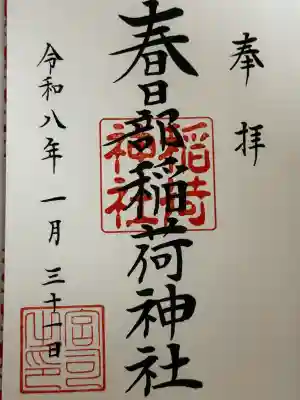 奉拝
春日部稲荷神社
令和八年一月三十一日
稲荷
神社
宮司
之印